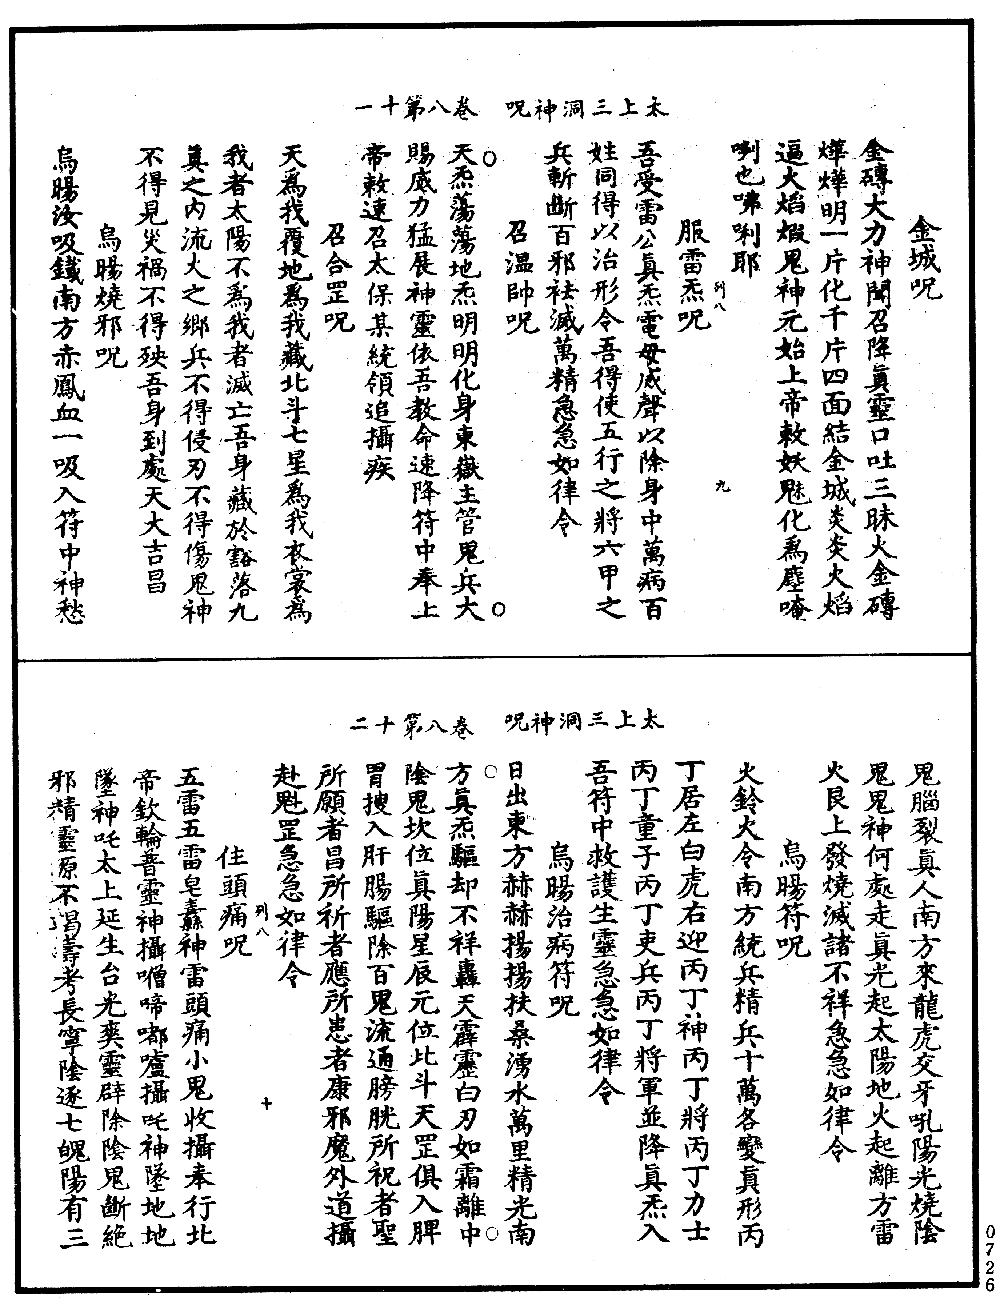 太上三洞神呪　卷八第十一
金城呪
金磚大力神聞召降眞靈口吐三昧火金磚
燁燁明一片化千片四面結金城炎炎火焰
逼火焰煅鬼神元始上帝敕妖魅化爲塵唵
唎也㘄唎耶
列八
九
服雷炁呪
吾受雷公眞炁電母威聲以除身中萬病百
姓同得以治形令吾得使五行之將六甲之
兵斬斷百邪祛滅萬精急急如律令
召溫帥呪
天炁蕩蕩地炁明明化身東嶽主管鬼兵大
賜威力猛展神靈依吾教命速降符中奉上
帝敕速召太保某統領追攝疾
召合罡呪
天爲我覆地爲我藏北斗七星爲我衣裳爲
我者太陽不爲我者滅亡吾身藏於豁落九
眞之內流火之鄉兵不得侵刃不得傷鬼神
不得見災禍不得殃吾身到處天大吉昌
烏暘燒邪呪
烏暘汝吸鐵南方赤鳳血一吸入符中神愁
太上三洞神呪　卷八第十二
鬼腦裂眞人南方來龍虎交牙吼陽光燒陰
鬼鬼神何處走眞光起太陽地火起離方雷
火艮上發燒滅諸不祥急急如律令
烏暘符呪
火鈴火令南方統兵精兵十萬各變眞形丙
丁居左白虎右迎丙丁神丙丁將丙丁力士
丙丁童子丙丁吏兵丙丁將軍並降眞炁入
吾符中救護生靈急急如律令
烏暘治病符呪
日出東方赫赫揚揚扶桑湧水萬里精光南
方眞炁驅却不祥轟天霹靂白刃如霜離中
陰鬼坎位眞陽星辰元位北斗天罡俱入脾
胃搜入肝腸驅除百鬼流通膀胱所祝者聖
所願者昌所祈者應所患者康邪魔外道攝
赴魁罡急急如律令
列八
十
住頭痛呪
五雷五雷皂纛神雷頭痛小鬼收攝奉行北
帝欽輪普靈神攝噌啼嘟嚧攝吒神墜地地
墜神吒太上延生台光奭靈辟除陰鬼斷絕
邪精靈源不渴壽考長寧陰逐七魄陽有三
0726